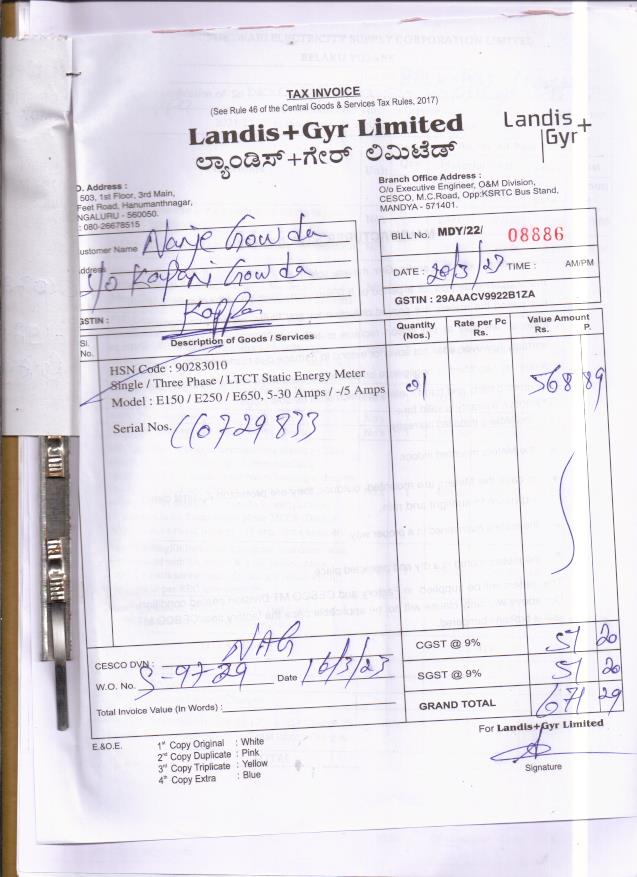 TAX INVOICE
(See Rule 46 of the Central Goods & Services Tax Rules, 2017)
Landis+Gyr Limited
ಲ್ಯಾಂಡಿಸ್+ಗೇರ್ ಲಿಮಿಟೆಡ್
Landis+
Gyr
O. Address :
503, 1st Floor, 3rd Main,
Feet Road, Hanumanthnagar,
NGALURU - 560050.
: 080-26678515
Branch Office Address :
O/o Executive Engineer, O&M Division,
CESCO, M.C.Road, Opp:KSRTC Bus Stand,
MANDYA - 571401.
ustomer Name Nanje Gowda
ddress S/o Kapani Gowda
Koppa
GSTIN :
BILL No. MDY/22/ 08886
DATE : 20/3/23 TIME : AM/PM
GSTIN : 29AAACV9922B1ZA
Sl. No. Description of Goods / Services Quantity (Nos.) Rate per Pc Rs. Value Amount Rs. P.
HSN Code : 90283010
Single / Three Phase / LTCT Static Energy Meter
Model : E150 / E250 / E650, 5-30 Amps / -/5 Amps 01 568 89
Serial Nos. 0729833
CESCO DVN : NAG
W.O. No. S-9729 Date 16/3/23
Total Invoice Value (In Words) :
CGST @ 9% 51 20
SGST @ 9% 51 20
GRAND TOTAL 671 29
E.&O.E.
1st Copy Original : White
2nd Copy Duplicate : Pink
3rd Copy Triplicate : Yellow
4th Copy Extra : Blue
For Landis+Gyr Limited
Signature